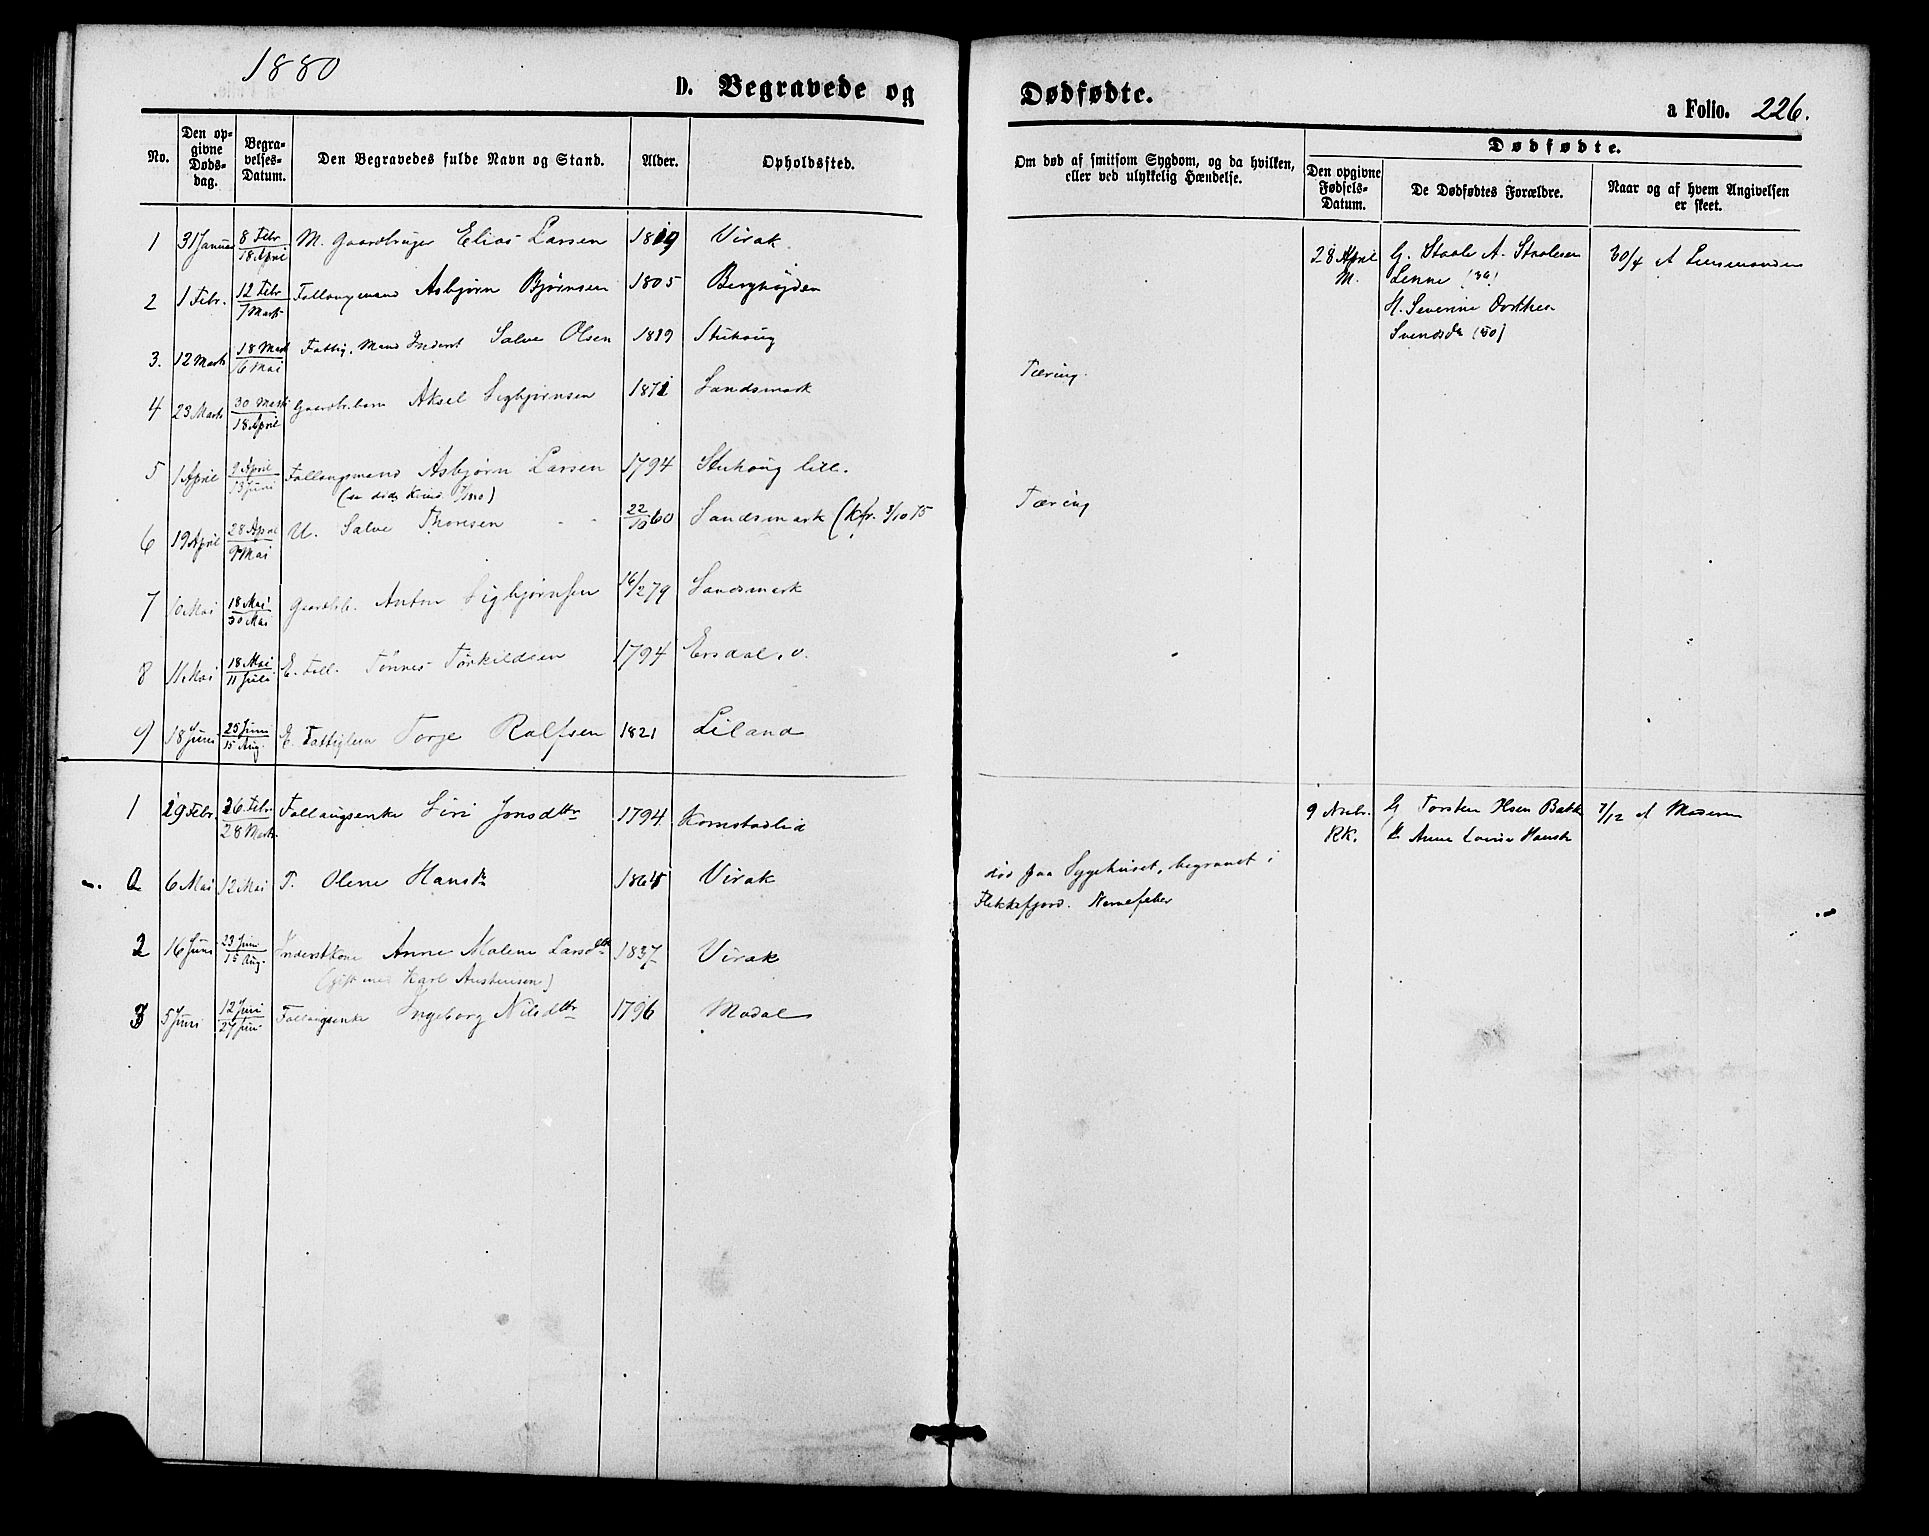 1880
D. Begravede og
Dødfødte.
a Folio. 226.
No.
Den op-
givne
Døds-
dag.
Begra-
velses-
Datum.
Den Begravedes fulde Navn og Stand.
Alder.
Opholdssted.
Om død af smitsom Sygdom, og da hvilken,
eller ved ulykkelig Hændelse.
Dødfødte.
Den opgivne
Fødsels-
Datum.
De Dødfødtes Forældre.
Naar og af hvem Angivelsen
er skeet.
1 31 Januar 8 Febr 18 April M. Gaardbruger Elias Larsen 1819 Virak
28 April G. Staale A. Staalesen 30/4 A Lensmanden
M. Lenne
H. Severine Dorthea
Svendsdr
2 1 Febr. 12 Febr 7 Marts Follaugsmand Asbjørn Bjørnsen 1805 Berghøiden
3. 12 Marts 18 Mart 16 Mai Fattig. Mand Inderst Salve Olsen 1819 Stuhoug
4 23 Marts 30 Marts 18 April Gaardbr.barn Aksel Sigbjørnsen 1871 Sandsmark Tæring.
5 1 April 9 April 13 Juni Follaugsmand Asbjørn Larsen 1794 Stuhoug lill.
6 19 April 28 April 9 Mai U. Salve Thorsen 22/10 60 Sandsmark (Kfr. 3/10 75 Tæring
7 10 Mai 18 Mai 30 Mai Gaardbr.b. Anton Sigbjørnsen 16/2 79 Sandsmark
8 11 Mai 18 Mai 11 Juli E. Foll. Tønnes Torkildsen 1794 Ersdal. ø.
9 18 Juni 25 Juni 15 Aug. E. Fattiglem Torje Rolfsen 1821 Liland
1 29 Febr. 26 Febr. 28 Marts Follaugsenke Siri Jonsdttr 1794 Kornstadlid
9 Nvbr. G Torsten Bakk 7/12 A Moderen
KK. H Anne Lovise Hansdr
0 6 Mai 12 Mai T. Olene Hansdr 1865 Virak død paa Sygehuset, begravet i
Flekkefjord. Nervefeber
2 16 Juni 23 Juni 15 Aug. Inderstkone Anne Malene Larsdttr 1837 Virak
(gift med Karl Anstensen)
3 5 Juni 12 Juni 27 Juni Follaugsenke Ingeborg Nilsdttr 1796 Modal